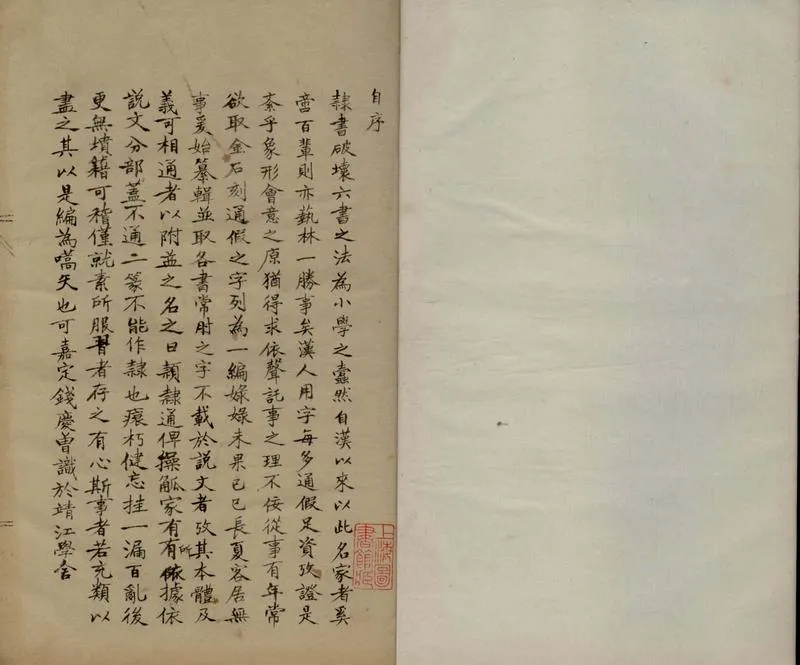 自序
隸書破壞六書之法為小學之蠹然自漢以來以此名家者奚
啻百輩則亦藝林一勝事矣漢人用字每多通假足資攷證是
紊乎象形會意之原猶得求依聲託事之理不佞從事有年常
欲取金石刻通假之字列為一編婇婇未果已巳長夏客居無
事爰始纂輯並取各書常用之字不載於說文者攷其本體及
義可相通者以附益之名之曰隸通俾操觚家有所依據依
說文分部蓋不通二篆不能作隸也瘝朽健忘挂一漏百亂後
更無墳籍可稽僅就素所服習者存之有心斯事者若充類以
盡之其以是編為嚆矢也可嘉定錢慶曾識於靖江學舍
上海圖
書館藏